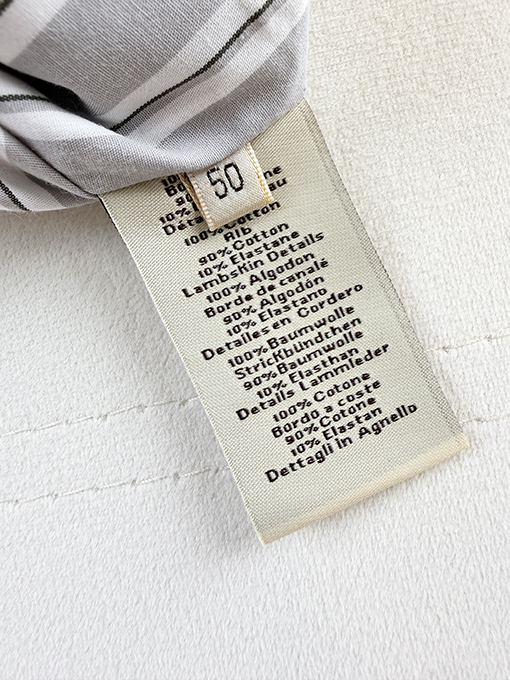 50
100% Cotton
Rib
90% Cotton
10% Elastane
Lambskin Details
100% Algodon
Borde de canalé
90% Algodón
10% Elastano
Detalles en Cordero
100% Baumwolle
Strickbündchen
90% Baumwolle
10% Elasthan
Details Lammleder
100% Cotone
Bordo a coste
90% Cotone
10% Elastan
Dettagli in Agnello